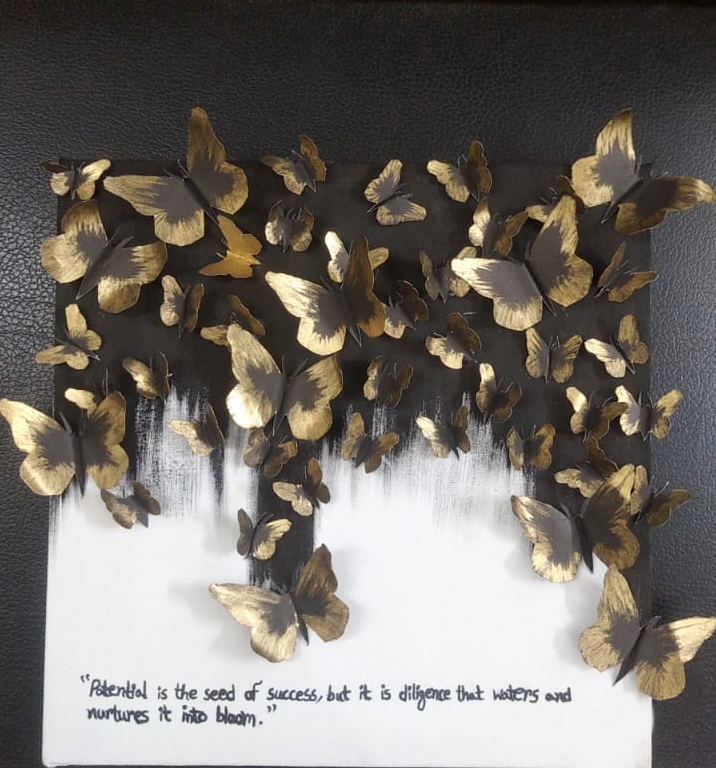 "Potential is the seed of success, but it is diligence that waters and
nurtures it into bloom."